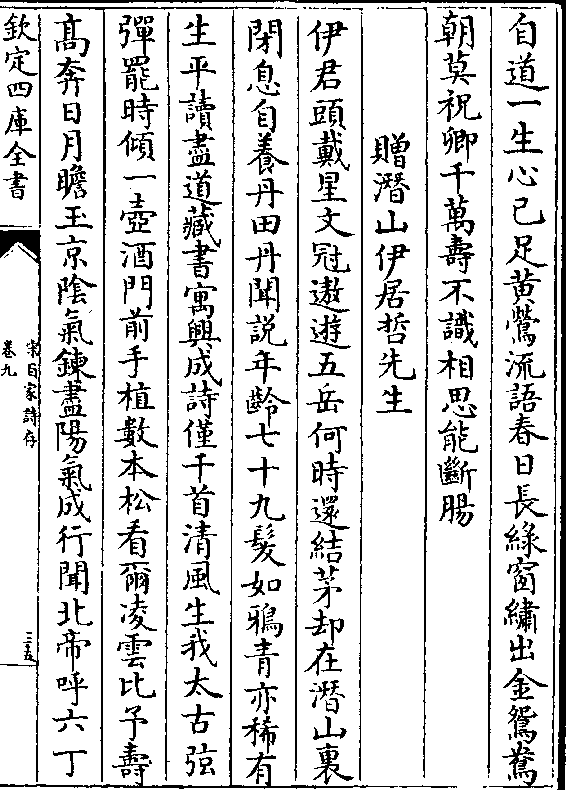 自道一生心已足黄鶯流語春日長綠窗繡出金鴛鴦
朝莫祝卿千萬壽不識相思能斷腸
贈潛山伊居哲先生
伊君頭戴星文冠遨遊五岳何時還結茅却在潛山裏
閉息自養丹田丹聞説年齡七十九髮如鴉青亦稀有
生平讀盡道藏書寓興成詩僅千首清風生我太古弦
彈罷時傾一壺酒門前手植數本松看爾凌雲比予壽
髙奔日月瞻玉京陰氣鍊盡陽氣成行聞北帝呼六丁
欽定四庫全書
宋百家詩存
卷九
三五